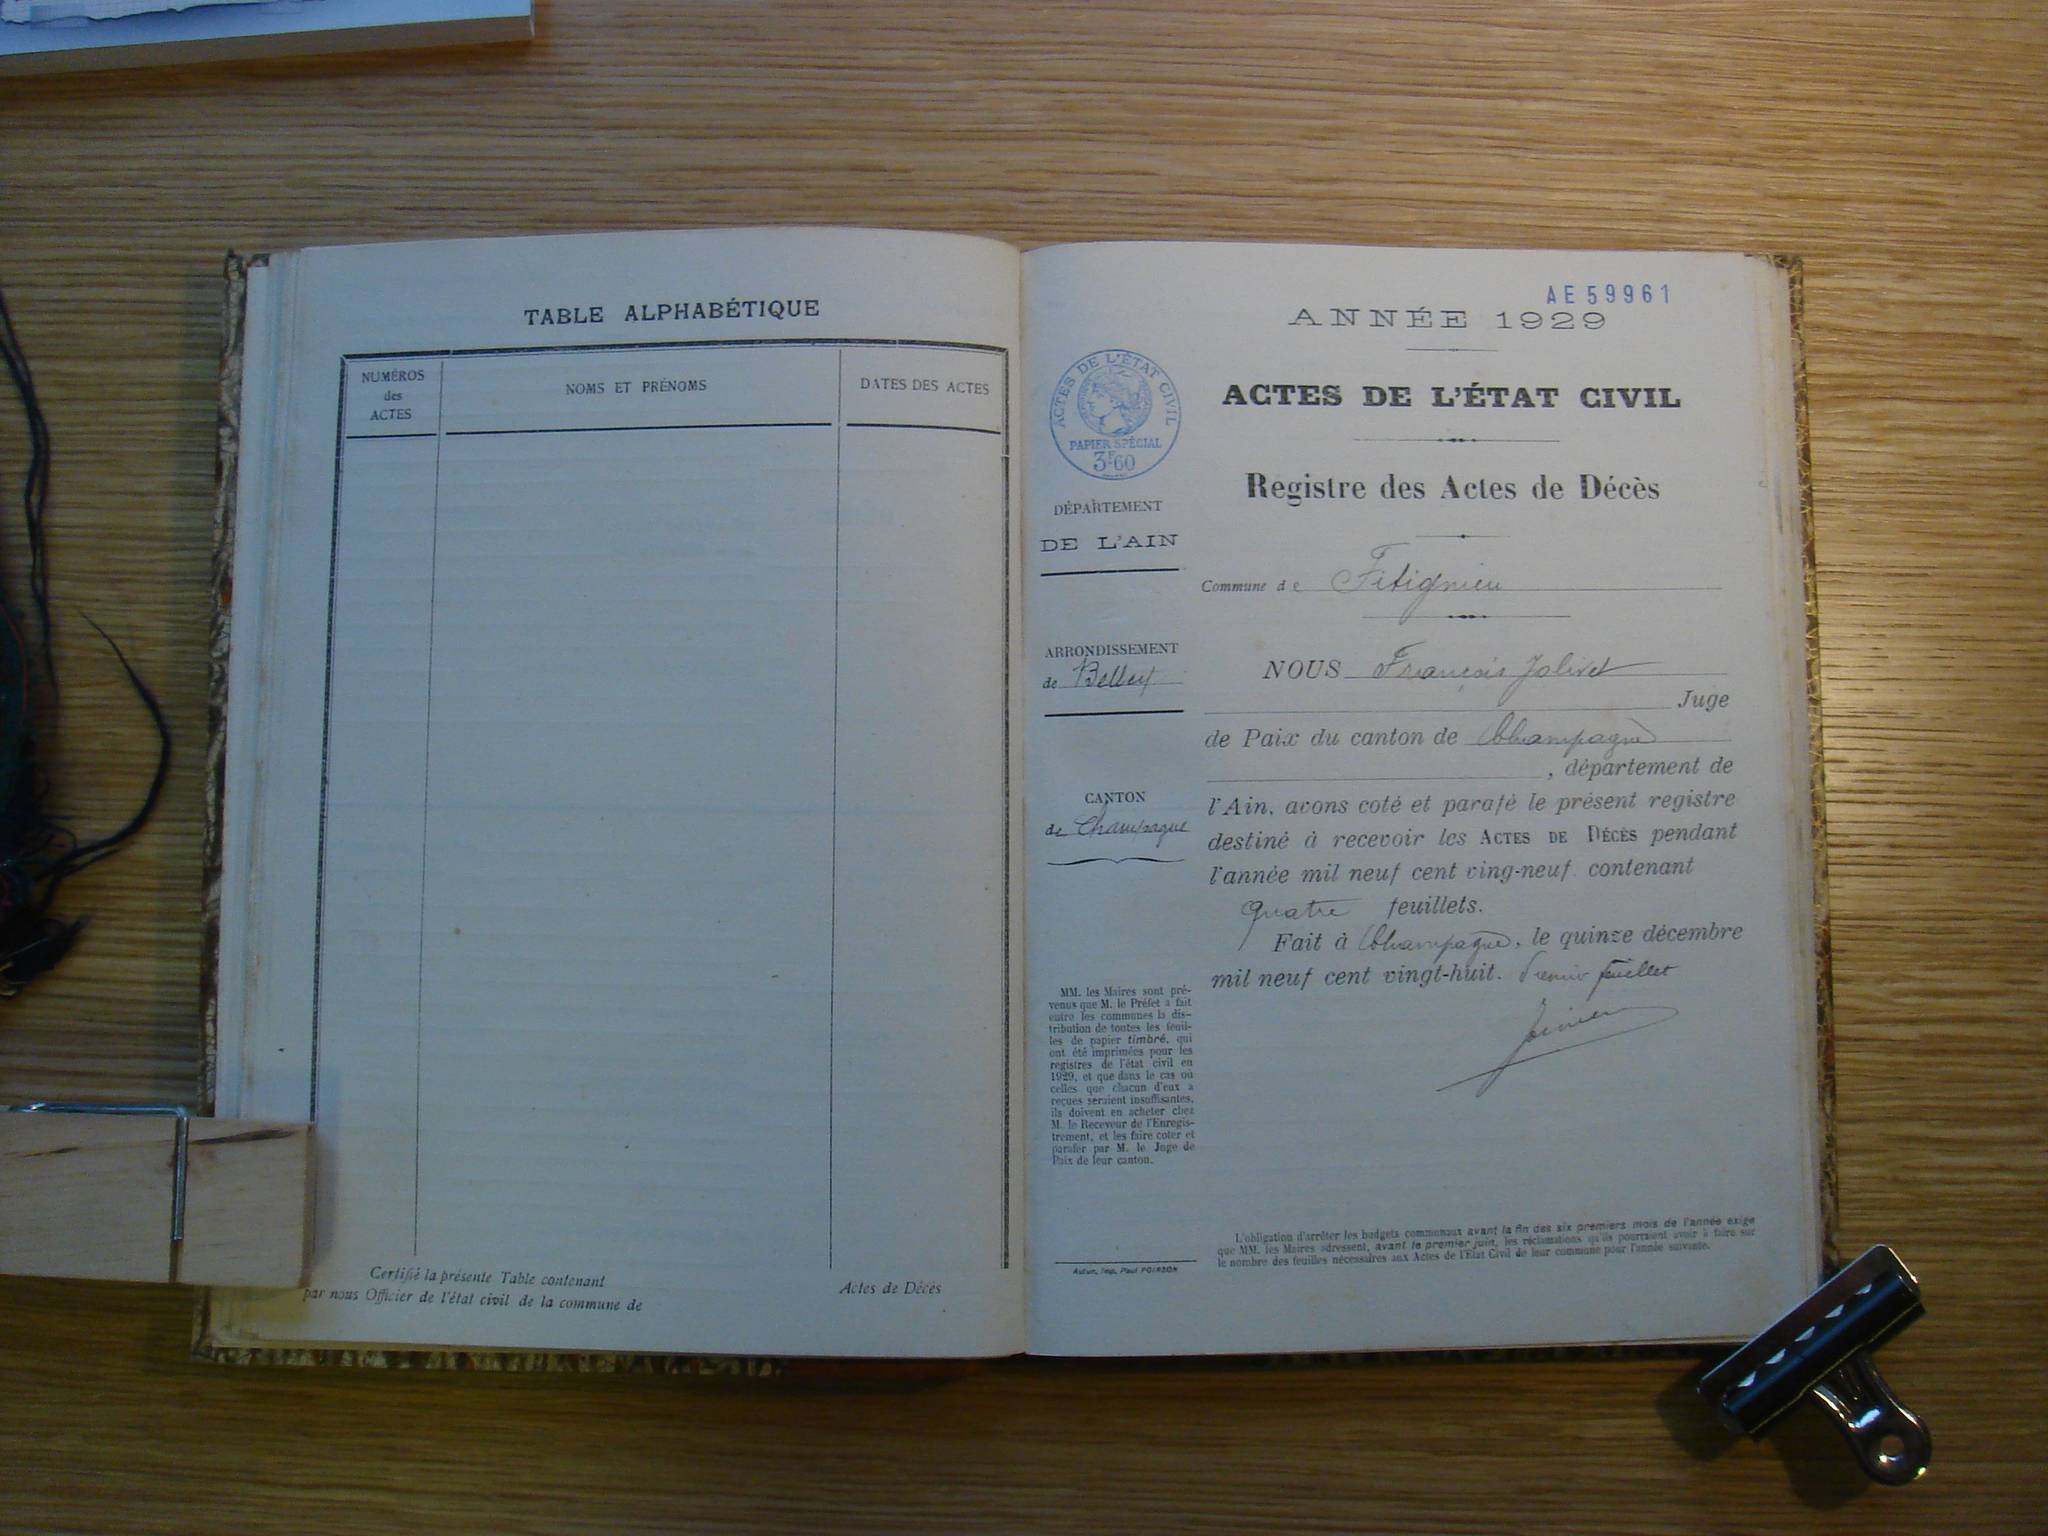 TABLE ALPHABÉTIQUE
NUMÉROS
des
ACTES
NOMS ET PRÉNOMS
DATES DES ACTES
Certifié la présente Table contenant
Actes de Décès
par nous Officier de l'état civil de la commune de
AE 59961
ANNÉE 1929
ACTES DE L'ÉTAT CIVIL
PAPIER SPÉCIAL
3F60
ACTES DE L'ÉTAT CIVIL
Registre des Actes de Décès
DÉPARTEMENT
DE L'AIN
Commune de Fitignieu
ARRONDISSEMENT
de Belley
CANTON
de Champagne
NOUS François Jolivet
Juge
de Paix du canton de Champagne
, département de
l'Ain, avons coté et parafé le présent registre
destiné à recevoir les ACTES DE DÉCÈS pendant
l'année mil neuf cent ving-neuf contenant
quatre feuillets.
Fait à Champagne, le quinze décembre
mil neuf cent vingt-huit. Premier feuillet
MM. les Maires sont pré-
venus que M. le Préfet a fait
entre les communes la dis-
tribution de toutes les feuil-
les de papier timbré, qui
ont été imprimées pour les
registres de l'état civil en
1929, et que dans le cas où
celles que chacun d'eux a
reçues seraient insuffisantes,
ils doivent en acheter chez
M. le Receveur de l'Enregis-
trement, et les faire coter et
parafer par M. le Juge de
Paix de leur canton.
Autun, Imp. Paul POIRSON
L'obligation d'arrêter les budgets communaux avant la fin des six premiers mois de l'année exige
que MM. les Maires adressent, avant le premier juin, les réclamations qu'ils pourraient avoir à faire sur
le nombre des feuilles nécessaires aux Actes de l'Etat Civil de leur commune pour l'année suivante.